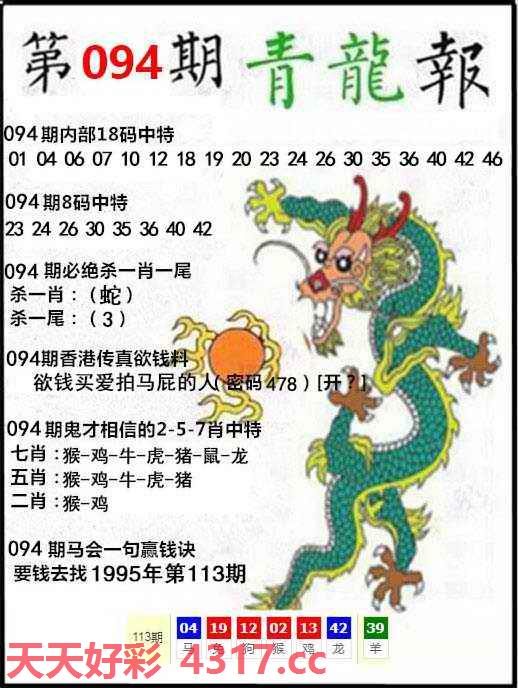 第094期青龍報
094期内部18码中特
01 04 06 07 10 12 18 19 20 23 24 26 30 35 36 40 42 46
094期8码中特
23 24 26 30 35 36 40 42
094期必绝杀一肖一尾
杀一肖：（蛇）
杀一尾：（3）
094期香港传真欲钱料
欲钱买爱拍马屁的人(密码478)[开?]
094期鬼才相信的2-5-7肖中特
七肖：猴-鸡-牛-虎-猪-鼠-龙
五肖：猴-鸡-牛-虎-猪
二肖：猴-鸡
094期马会一句赢钱诀
要钱去找1995年第113期
113期 04 19 12 02 13 42 39
马 兔 狗 猴 鸡 龙 羊
天天好彩 4317.cc